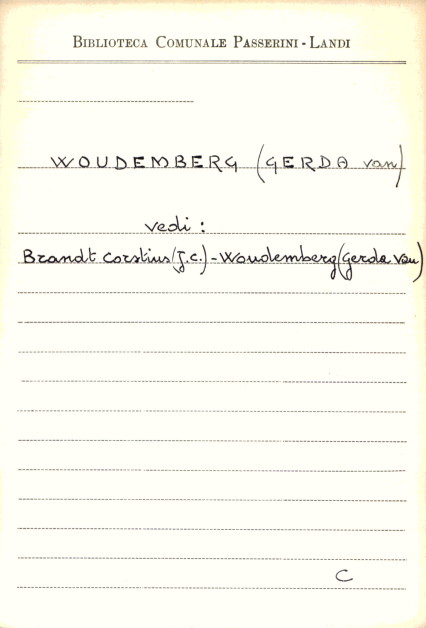 BIBLIOTECA COMUNALE PASSERINI - LANDI
WOUDEMBERG (GERDA van)
vedi :
Brandt Corstius (J.C.) - Woudemberg (Gerda van)
C